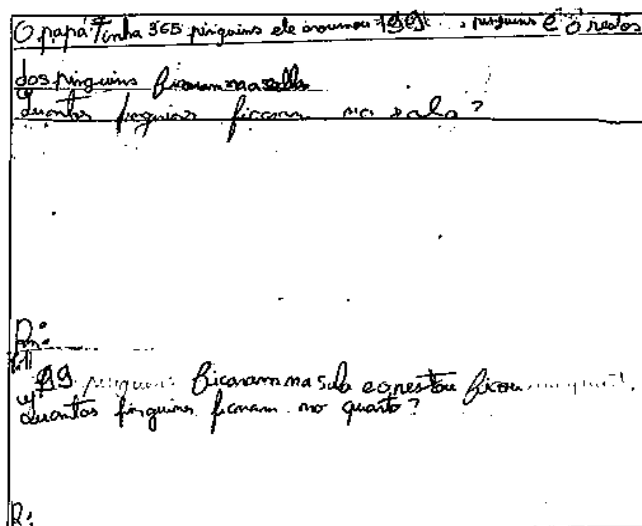 O papá Tinha 365 pinguins ele arrumou 199 pinguins e o restos
dos pinguins ficaram na salla
Quantos pinguins ficaram na sala?
R:
99 pinguins ficaram na sala e o restou ficou
Quantos pinguins ficaram no quarto?
R: